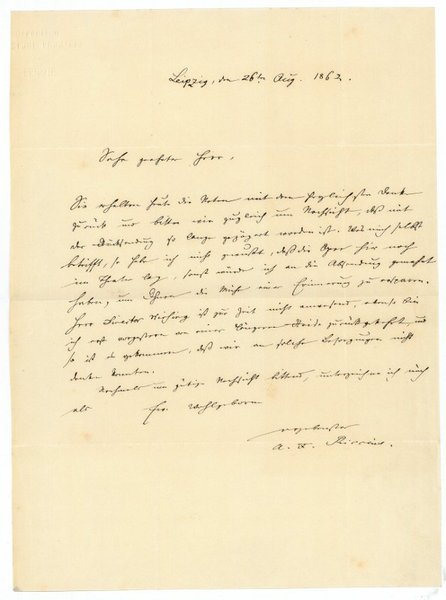 Leipzig, den 26ten Aug. 1862.
Sehr geehrter Herr,
Sie erhalten heute die Noten mit dem herzlichsten Danke
zurück und bitten wir zugleich um Nachsicht, daß mit
der Rücksendung so lange gezögert worden ist. Was mich selbst
betrifft, so habe ich nicht gewußt, daß die Oper hier noch
im Theater lag, sonst würde ich an die Absendung gemahnt
haben, um Ihnen die Mühe einer Erinnerung zu ersparen.
Herr Director Wirsing ist zur Zeit nicht anwesend, ebenso bin
ich erst vorgestern von einer längeren Reise zurückgekehrt, und
so ist es gekommen, daß wir an solche Besorgungen nicht
denken konnten.
Nochmals um gütige Nachsicht bittend, unterzeichne ich mich
als Ew. Wohlgeboren
ergebenster
A. F. Riccius.